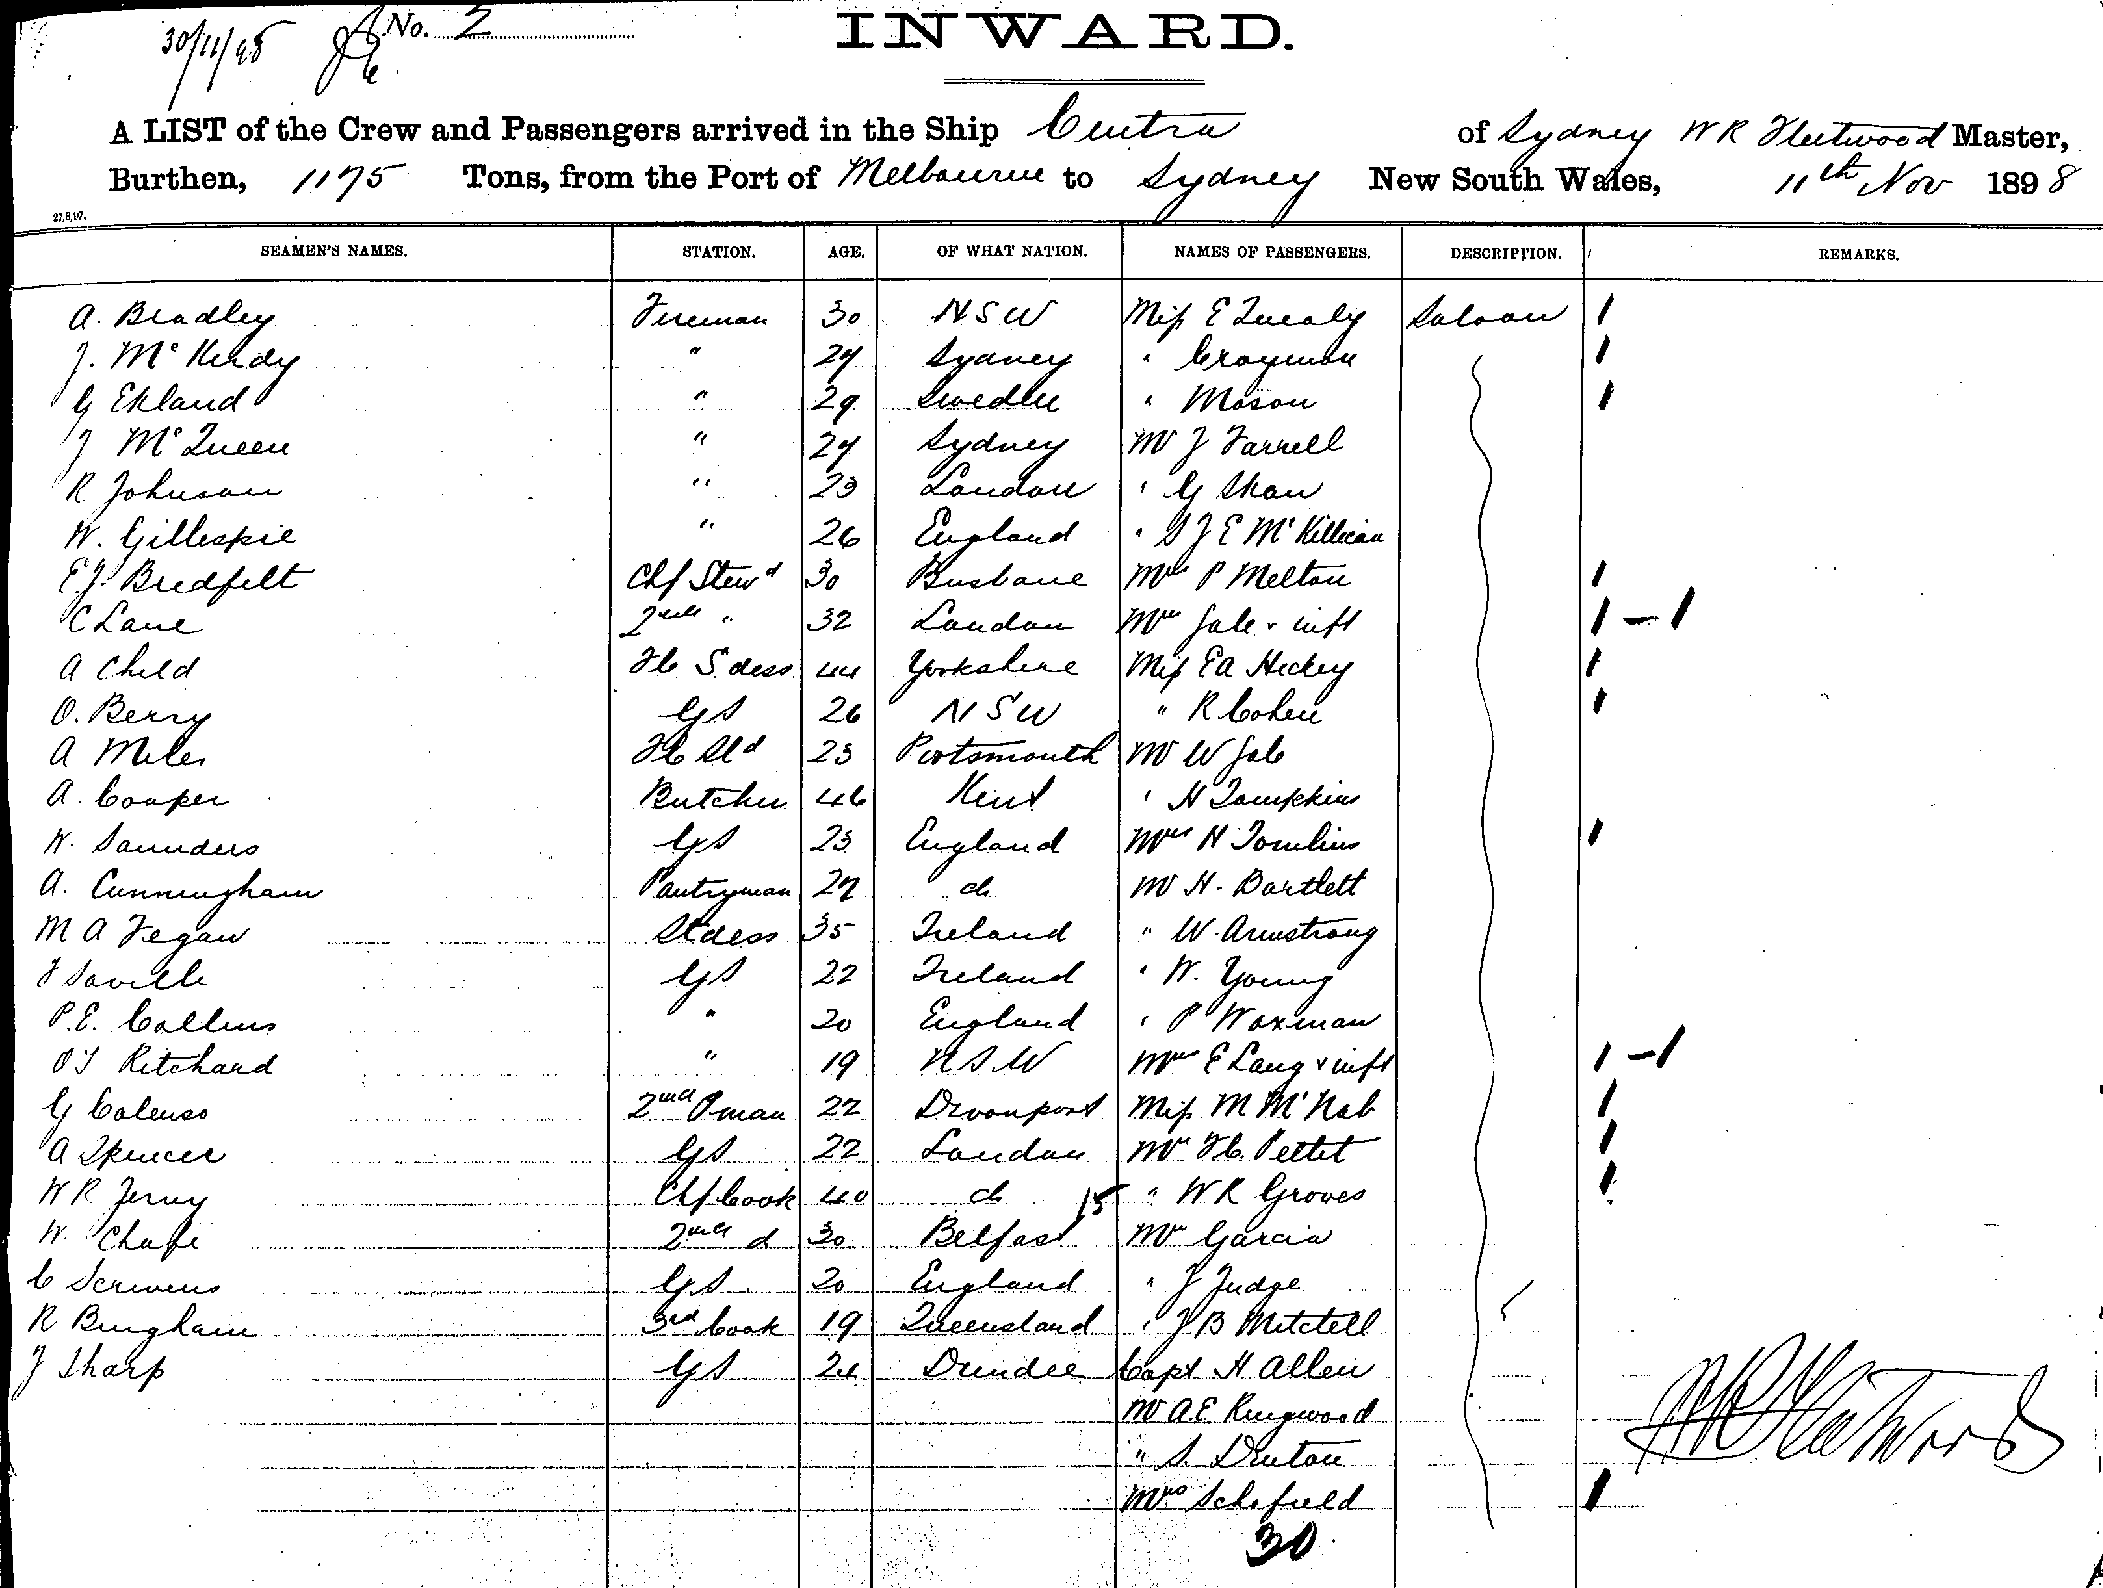 30/11/98 No. 2
INWARD.
A LIST of the Crew and Passengers arrived in the Ship Cintra of Sydney W R Fleetwood Master,
Burthen, 1175 Tons, from the Port of Melbourne to Sydney New South Wales, 11th Nov 1898
27.8.97.
SEAMEN'S NAMES. STATION. AGE. OF WHAT NATION. NAMES OF PASSENGERS. DESCRIPTION. REMARKS.
A. Bradley Fireman 30 NSW Miss E Quealy Saloon 1
J. McKurdy " 27 Sydney " Crayman 1
G Ekland " 29 Sweden " Mason 1
J McQueen " 27 Sydney Mr J Farrell
R Johnson " 23 London " G Shaw
W. Gillespie " 26 England " S J E McKillican
E J Bredfelt Chf Stewd 30 Brisbane Mrs P Melton 1
C Lane 2nd " 32 London Mrs Jale & inft 1 – 1
A Child FC S.dess 44 Yorkshire Miss EA Hickey 1
O. Berry GS 26 NSW " R Cohen 1
A Miles FC Std 23 Portsmouth Mr W Jale
A. Cooper Butcher 46 Kent " H Tompkins
W. Saunders GS 23 England Mrs H Tomlins 1
A. Cunningham Pantryman 27 do Mr H. Bartlett
M A Fegan Stdess 35 Ireland " W. Armstrong
F Saville GS 22 Ireland " W. Young
P.E. Collins " 20 England " P Waxman
O J Ritchard " 19 NSW Mrs E Lang & inft 1 – 1
G Colenso 2nd Pman 22 Devonport Miss M McNab 1
A Spencer GS 22 London Mr FC Pettet 1
W R Jerny Chf Cook 40 do 15 " W R Groves 1
W. Chape 2nd d 30 Belfast Mr Garcia
C Scrivens GS 20 England " J Judge
R Bingham 3rd Cook 19 Queensland " J B Mitchell
J Sharp GS 24 Dundee Capt H Allen
Mr A E Ringwood
" S. Denton
Mrs Schofield 1
W R Fleetwood
30